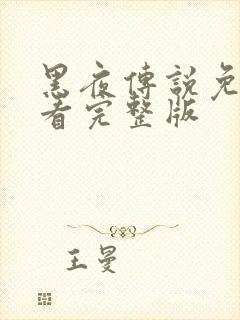 黑夜傳說免
看完整版
王曼